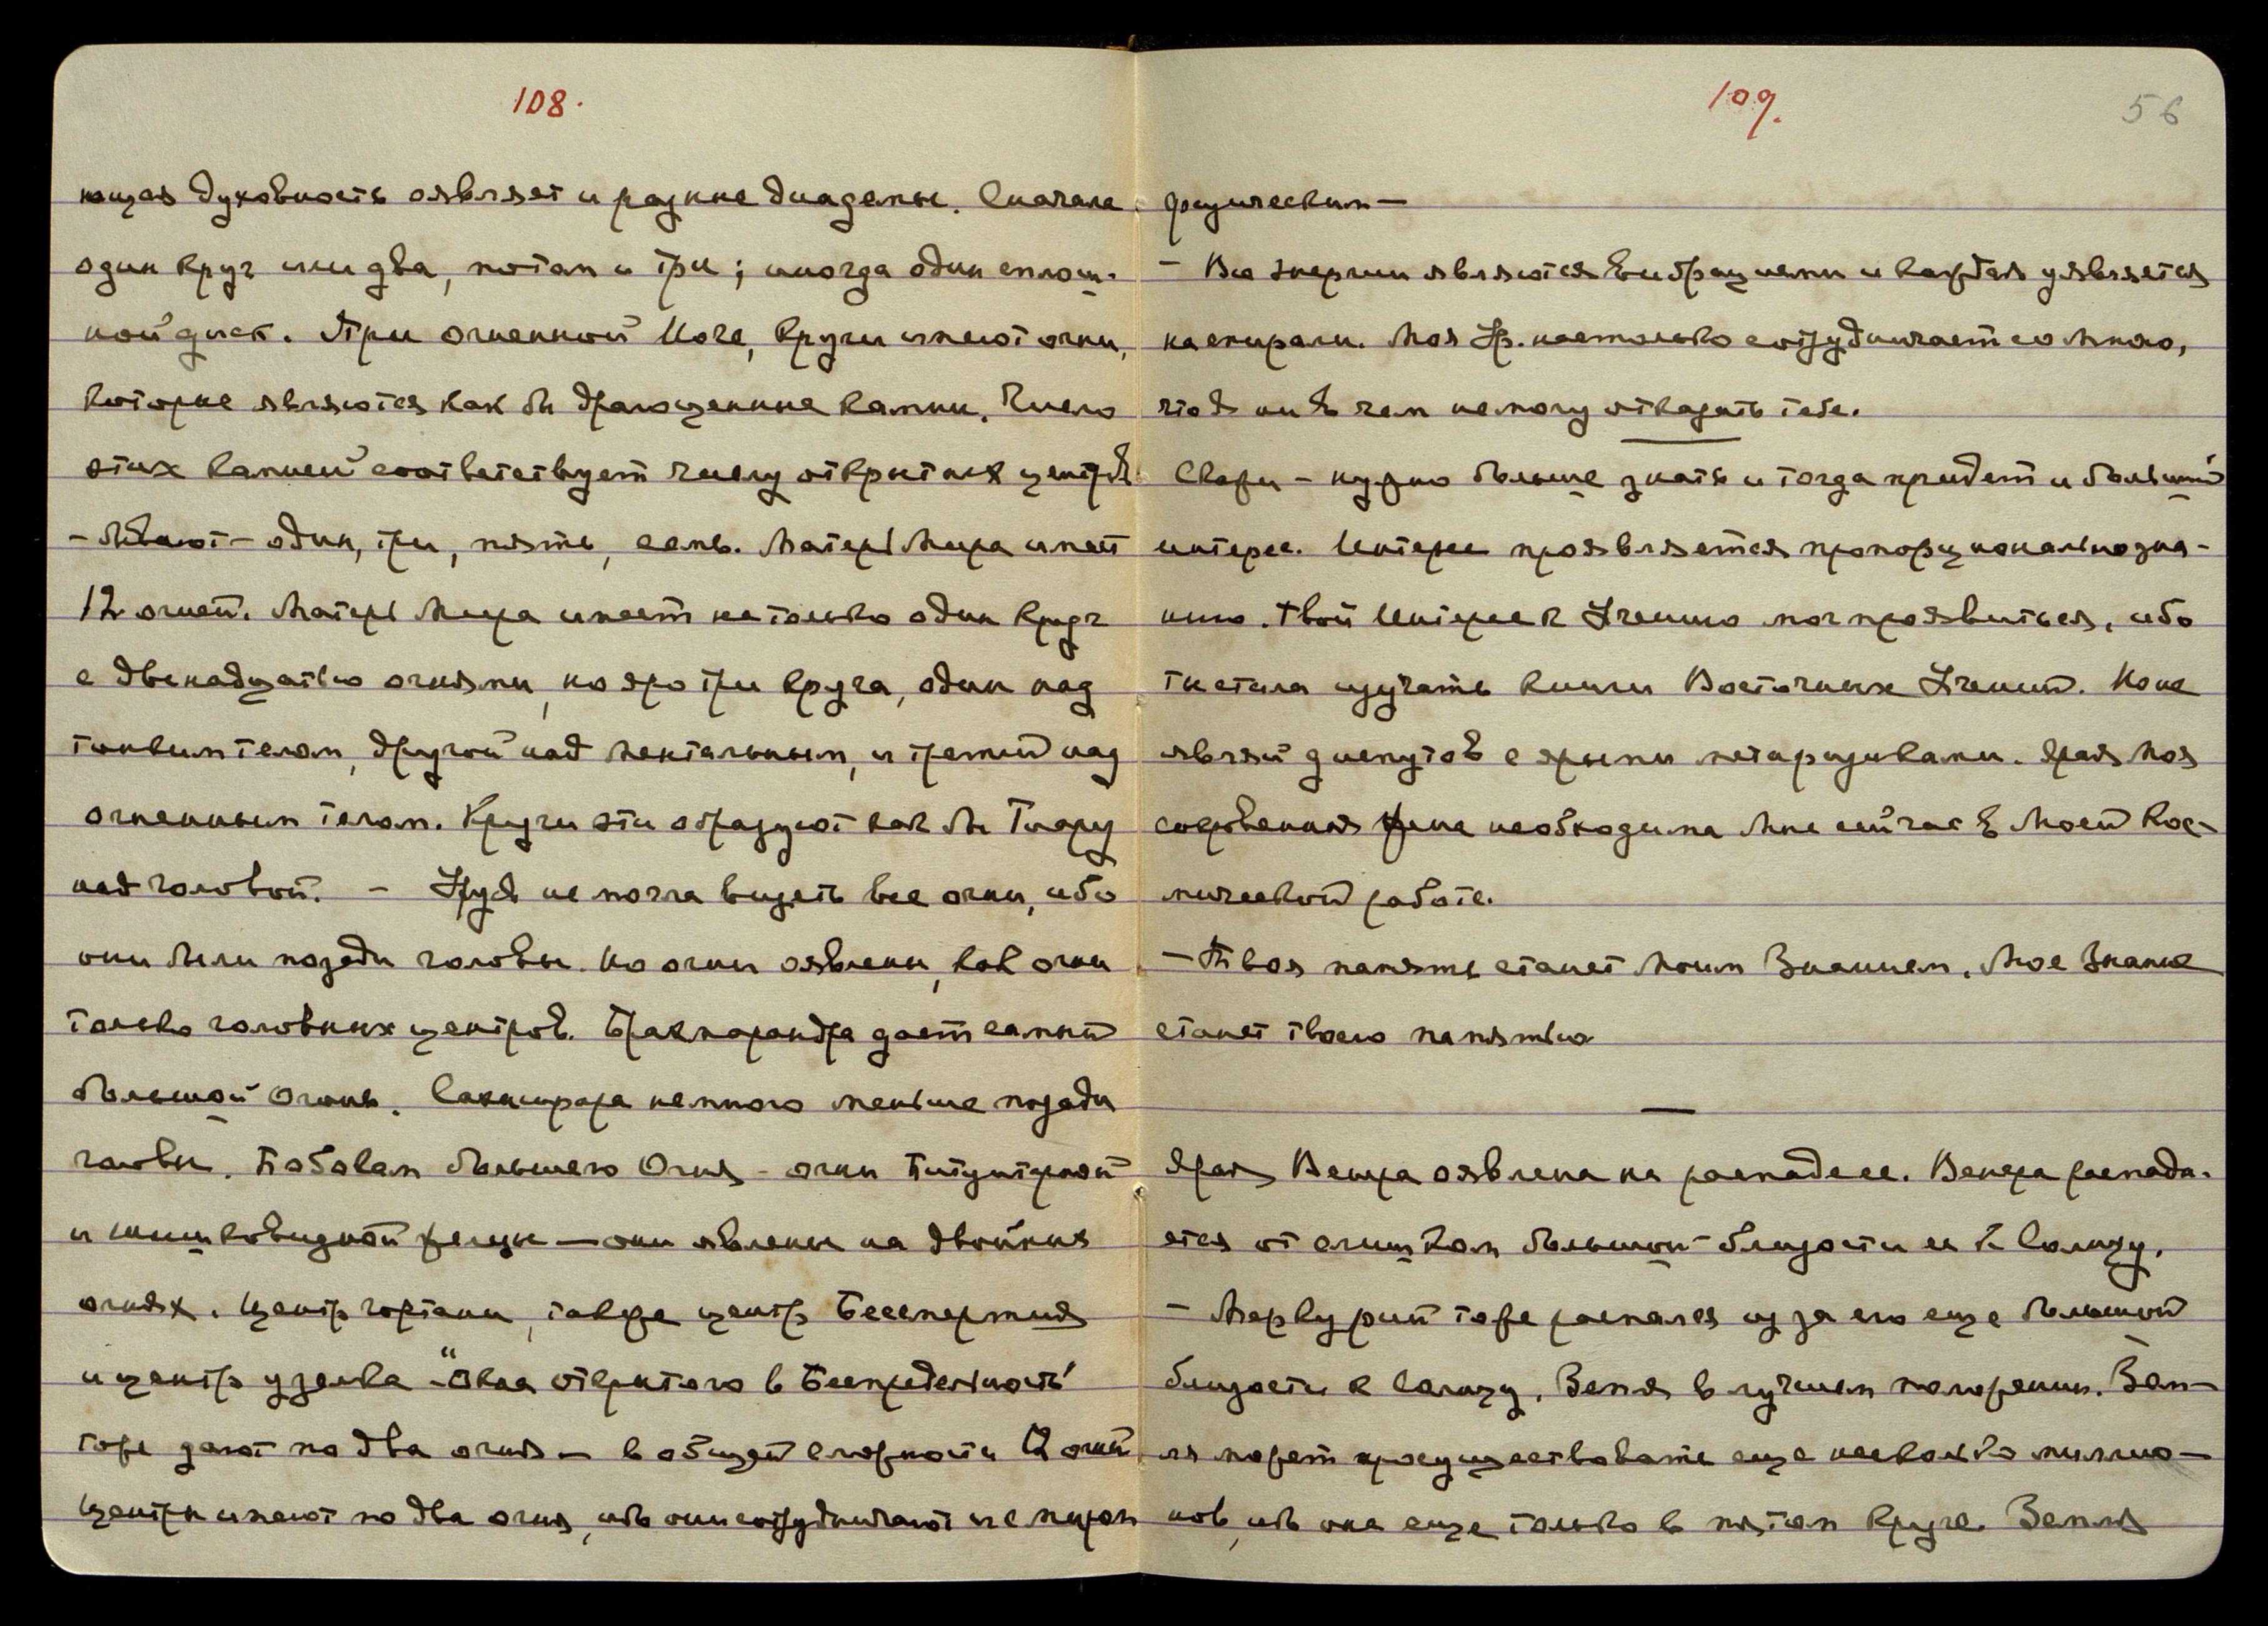 108.
ющая духовность оявляет и разные диадемы. Сначала
один круг или два, потом и три; иногда один сплош-
ной диск. При огненной Йоге, круги имеют огни,
которые являются как бы драгоценные камни. Число
этих камней соответствует числу открытых центров
- бывают - один, три, пять, семь. Матерь Мира имеет
12 огней. Матерь Мира имеет не только один круг
с двенадцатью огнями, но яро три круга, один над
тонким телом, другой над ментальным, и третий над
огненным телом. Круги эти образуют как бы Тиару
над головой. - Урус. не могла видеть все огни, ибо
они были позади головы. Но огни оявлены, как огни
только головных центров. Брамарандра дает самый
большой огонь. Сахасрара немного меньше позади
головы. По бокам большего Огня - огни Питуитарной
и шишковидной желез — они явлены на двойных
огнях. Центр гортани, также центр Бессмертия
и центр узелка - "Окна открытого в Беспредельность"
тоже дают по два огня — в общей сложности 12 огней
Центры имеют по два огня, ибо они сотрудничают и с миром
109.
56
физическим —
- Все энергии являются вибрациями и каждая уявляется
на спирали. Моя Ур. настолько сотрудничает со Мною,
что Я ни в чем не могу отказать тебе.
Скажи - нужно больше знать и тогда придет и больший
интерес. Интерес проявляется пропорционально зна-
нию. Твой Интерес к Учению мог проявиться, ибо
ты стала изучать книги Восточных Учений. Но не
являй диспутов с ярыми метафизиками. Ярая Моя
сокровенная необходима Мне сейчас в Моей Кос-
мической работе.
- Твоя память станет Моим Знанием, Мое Знание
станет твоею памятью
Ярая Венера оявлена на распаде ее. Венера распада-
ется от слишком большой близости ее к Солнцу.
- Меркурий тоже распался из за его еще большой
близости к Солнцу. Земля в лучшем положении. Зем-
ля может просуществовать еще несколько миллио-
нов, ибо она еще только в пятом круге. Земля